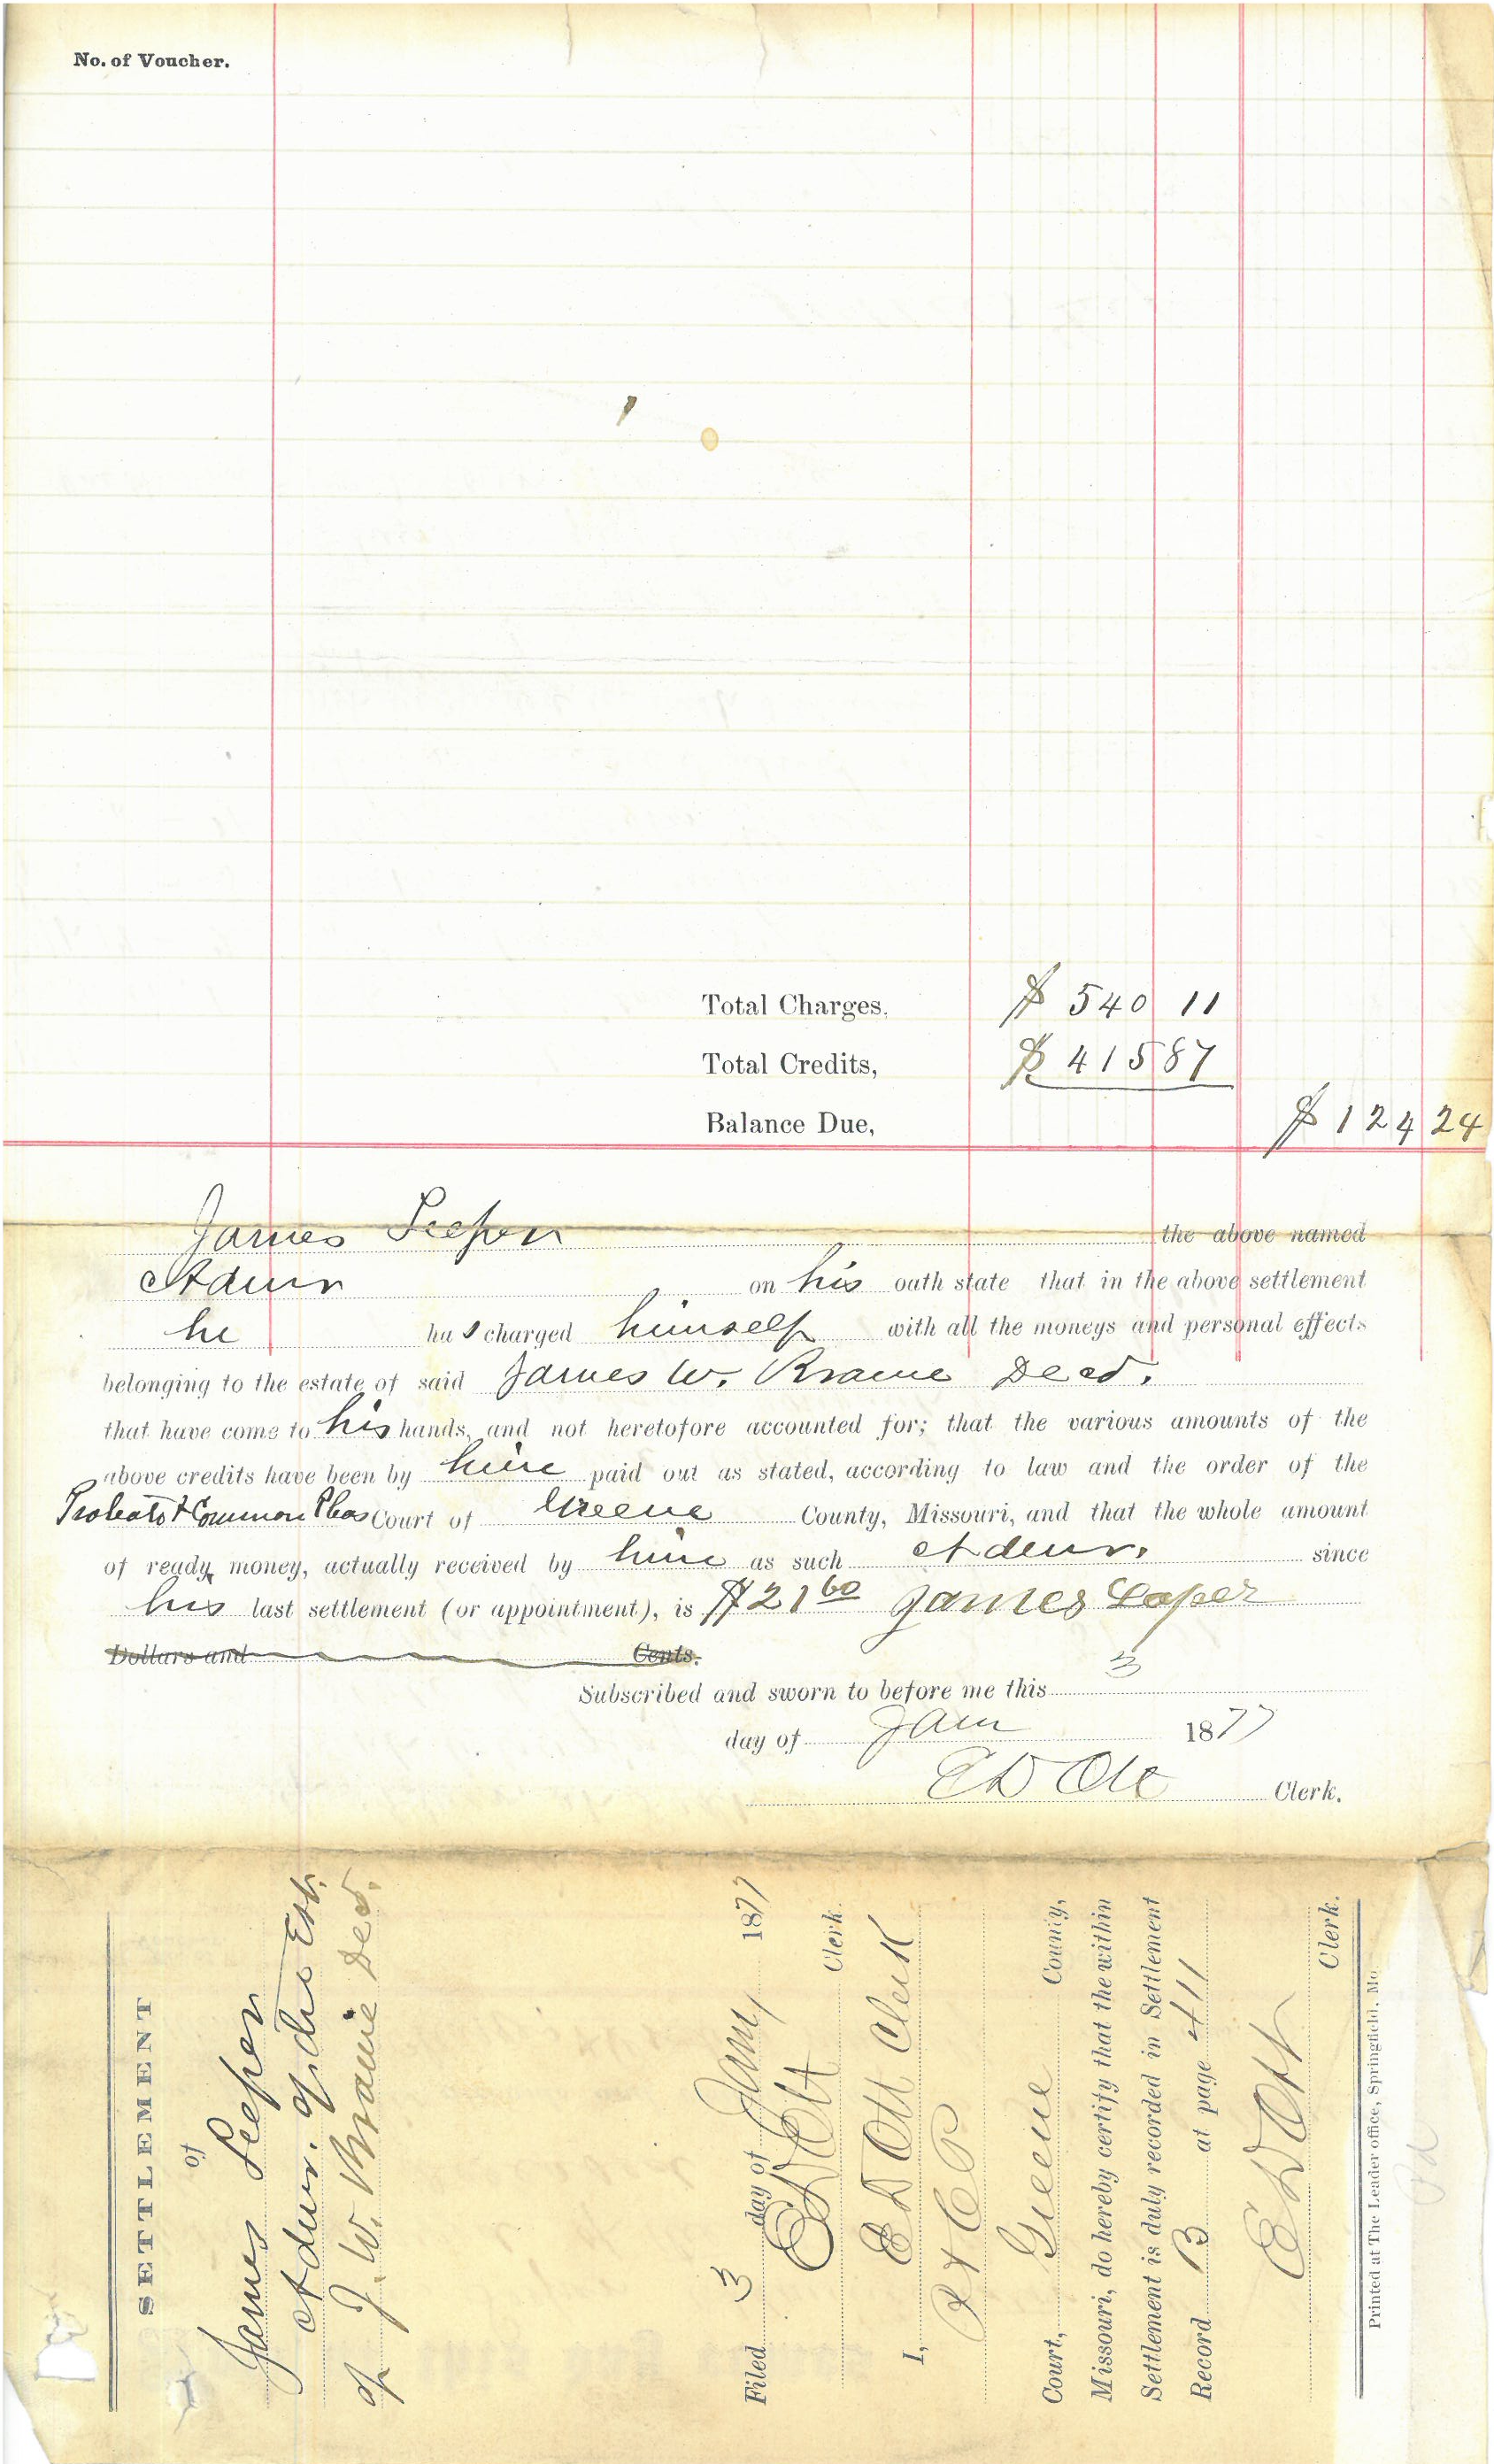 No. of Voucher.
Total Charges, $ 540 11
Total Credits, $ 415 87
Balance Due, $ 124 24
James Leeper the above named
Admr on his oath state that in the above settlement
he has charged himself with all the moneys and personal effects
belonging to the estate of said James W. Decd.
that have come to his hands, and not heretofore accounted for; that the various amounts of the
above credits have been by him paid out as stated, according to law and the order of the
Probate & Common Pleas Court of Greene County, Missouri, and that the whole amount
of ready money, actually received by him as such Admr. since
his last settlement (or appointment), is $21 60 James Leper
Dollars and Cents.
Subscribed and sworn to before me this 3
day of Jan 1877
E D Ott Clerk.
SETTLEMENT
of
James Leeper
Admr. of the Est.
of J. W. Decd.
Filed 3 day of Jany 1877
E D Ott Clerk.
I, E D Ott Clerk
P & C P
Court, Greene County,
Missouri, do hereby certify that the within
Settlement is duly recorded in Settlement
Record B at page 411
E D Ott
Clerk.
Printed at The Leader office, Springfield, Mo.